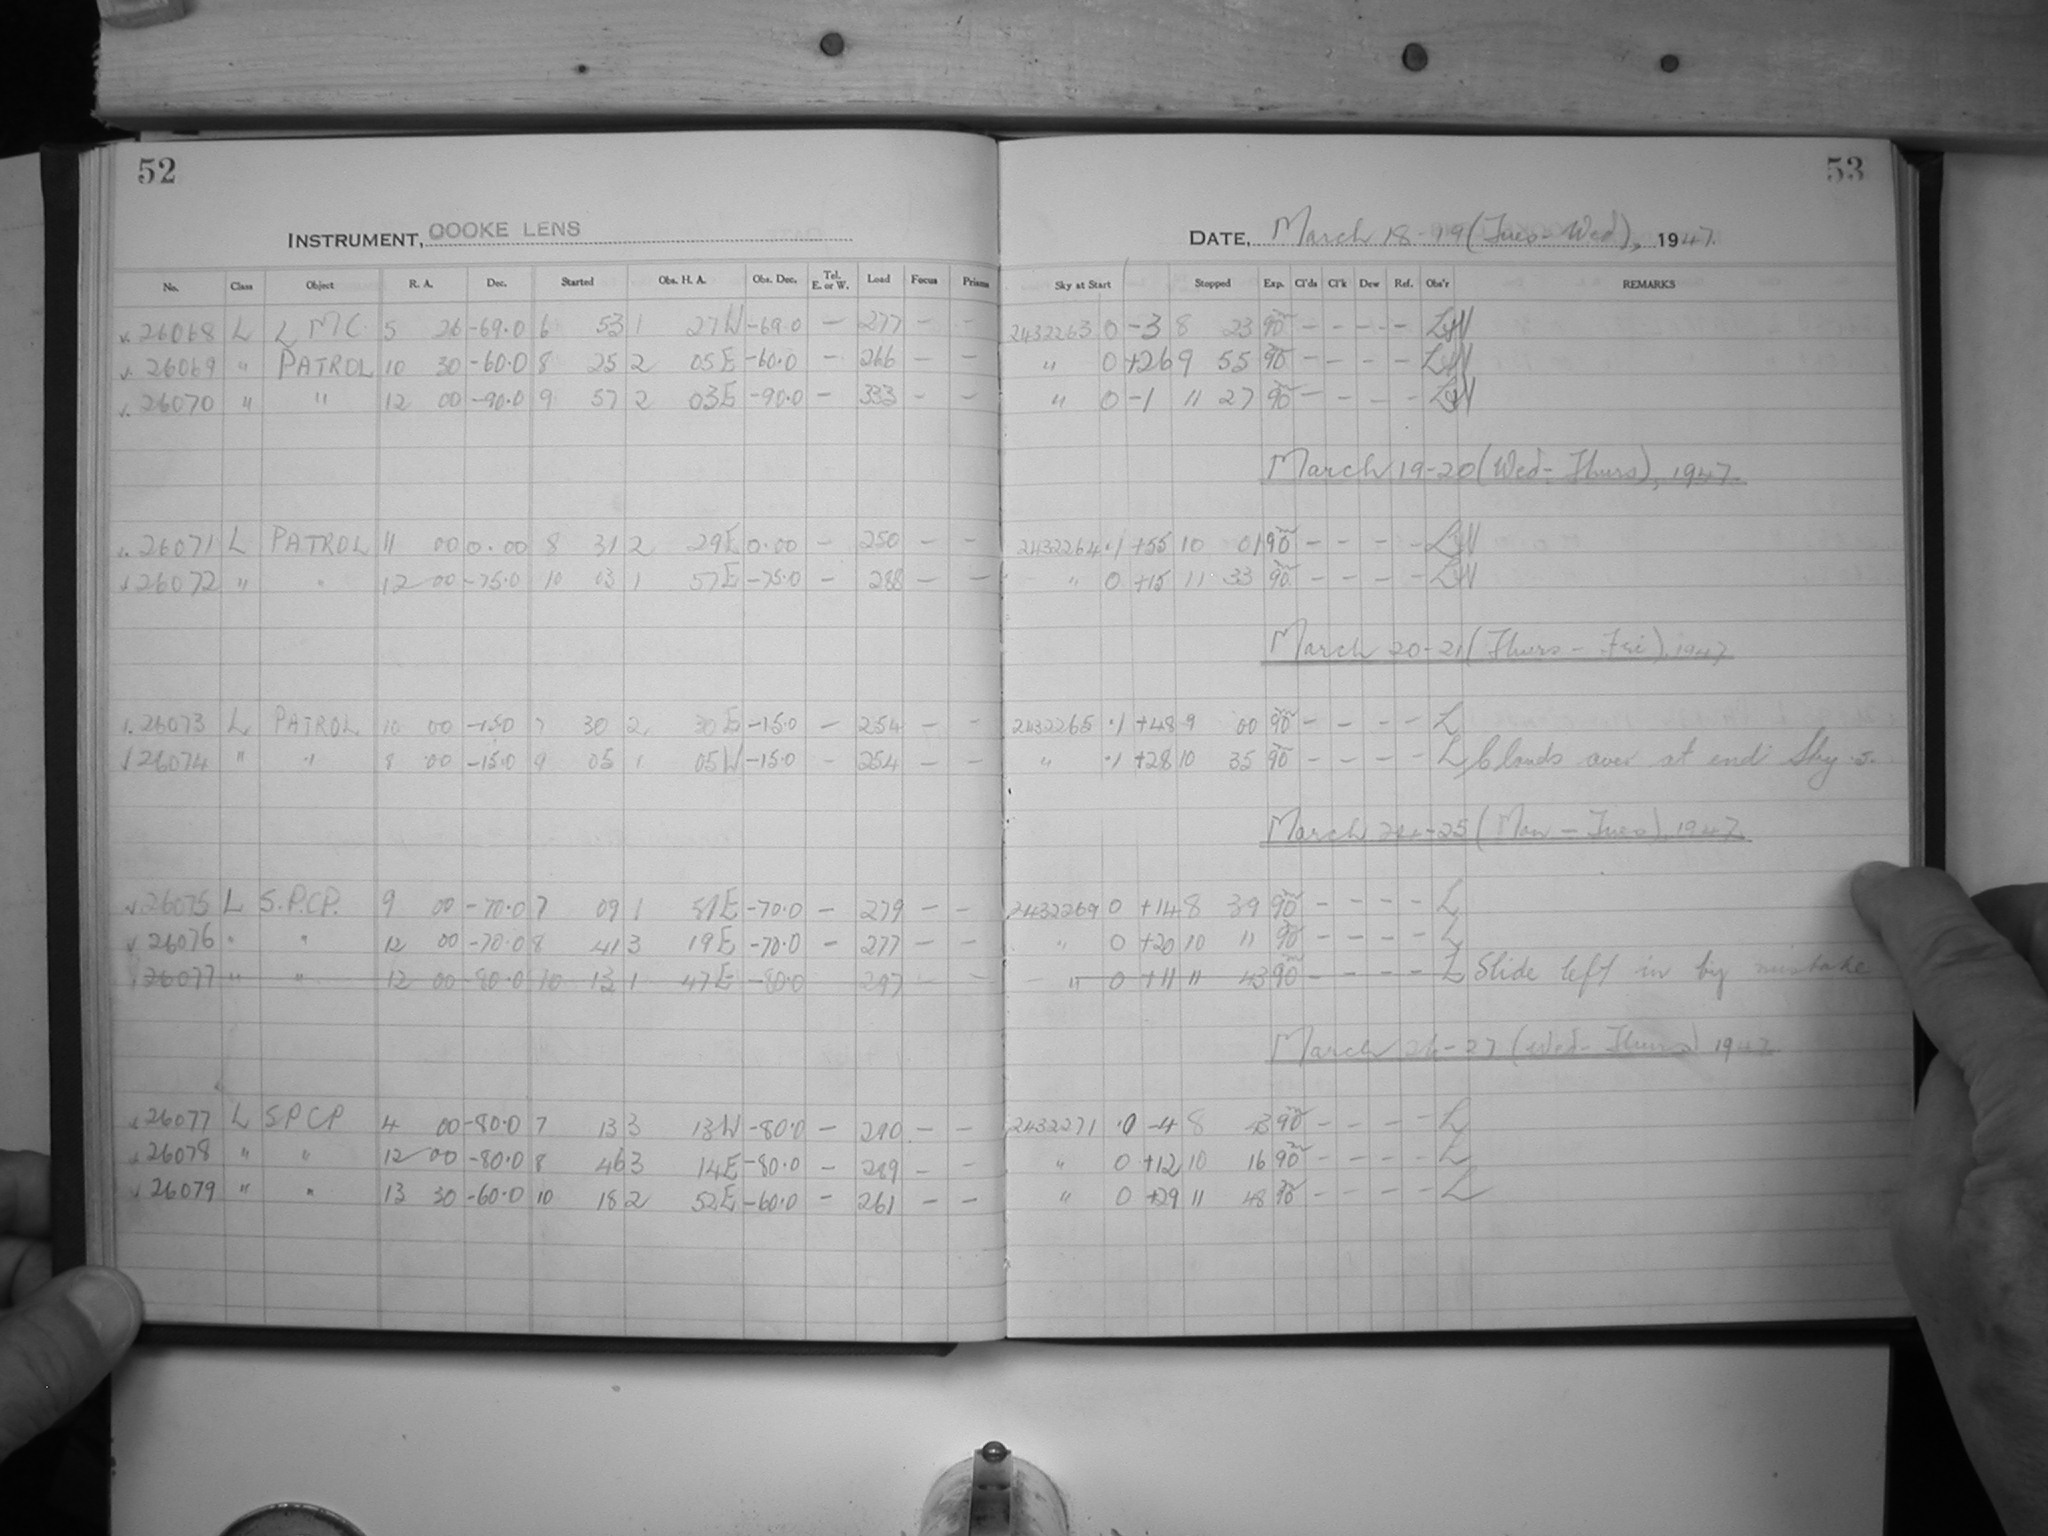 52
INSTRUMENT, COOKE LENS
No. Class Object R. A. Dec. Started Obs. H. A. Obs. Dec. Tel. E. or W. Load Focus Prisms
26068 L L MC 5 26 -69.0 6 53 1 27W -69.0 - 277 - -
26069 " PATROL 10 30 -60.0 8 25 2 05E -60.0 - 266 - -
26070 " " 12 00 -90.0 9 57 2 03E -90.0 - 333 - -
26071 L PATROL 11 00 0.00 8 31 2 29E 0.00 - 250 - -
26072 " " 12 00 -75.0 10 03 1 57E -75.0 - 288 - -
26073 L PATROL 10 00 -15.0 7 30 2 30E -15.0 - 254 - -
26074 " " 8 00 -15.0 9 05 1 05W -15.0 - 254 - -
26075 L S.P.C.P. 9 00 -70.0 7 09 1 51E -70.0 - 279 - -
26076 " " 12 00 -70.0 8 41 3 19E -70.0 - 277 - -
26077 " " 12 00 -80.0 10 13 1 47E -80.0 297 - -
26077 L S P C P 4 00 -80.0 7 13 3 13W -80.0 - 290 - -
26078 " " 12 00 -80.0 8 46 3 14E -80.0 - 289 - -
26079 " " 13 30 -60.0 10 18 2 52E -60.0 - 261 - -
53
DATE, March 18-19 (Tues-Wed), 1947.
Sky at Start Stopped Exp. Cl'ds Cl'k Dew Ref. Obs'r REMARKS
2432263 0 -3 8 23 90 - - - -
" 0 +26 9 55 90 - - - -
" 0 -1 11 27 90 - - - -
March 19-20 (Wed-Thurs), 1947.
2432264 .1 +55 10 01 90 - - - -
" 0 +15 11 33 90 - - - -
March 20-21 (Thurs-Fri), 1947
2432265 .1 +48 9 00 90 - - - - L
" .1 +28 10 35 90 - - - - L Clouds over at end Sky .5.
March 24-25 (Mon-Tues), 1947
2432269 0 +14 8 39 90 - - - - L
" 0 +20 10 11 90 - - - - L
" 0 +11 11 43 90 - - - - L Slide left in by mistake
March 26-27 (Wed-Thurs) 1947
2432271 .0 -4 8 43 90 - - - - L
" 0 +12 10 16 90 - - - - L
" 0 +29 11 48 90 - - - - L